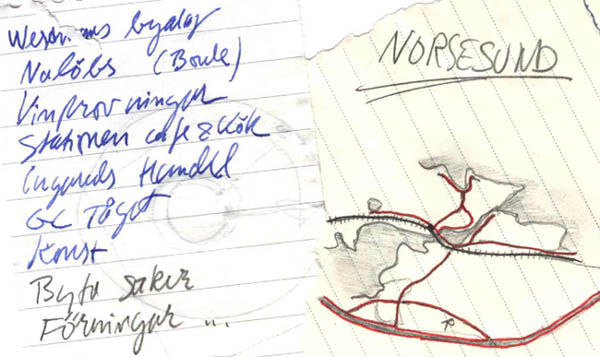 byalag
(Boule)
Vinprovningar
Stationen cafe & Kök
Ingareds Handel
GC Tåget
Konst
Byta saker
Förningar ...
NORSESUND